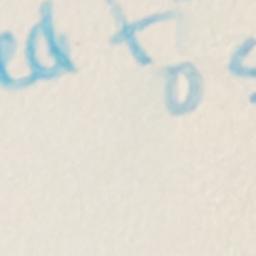 ed to